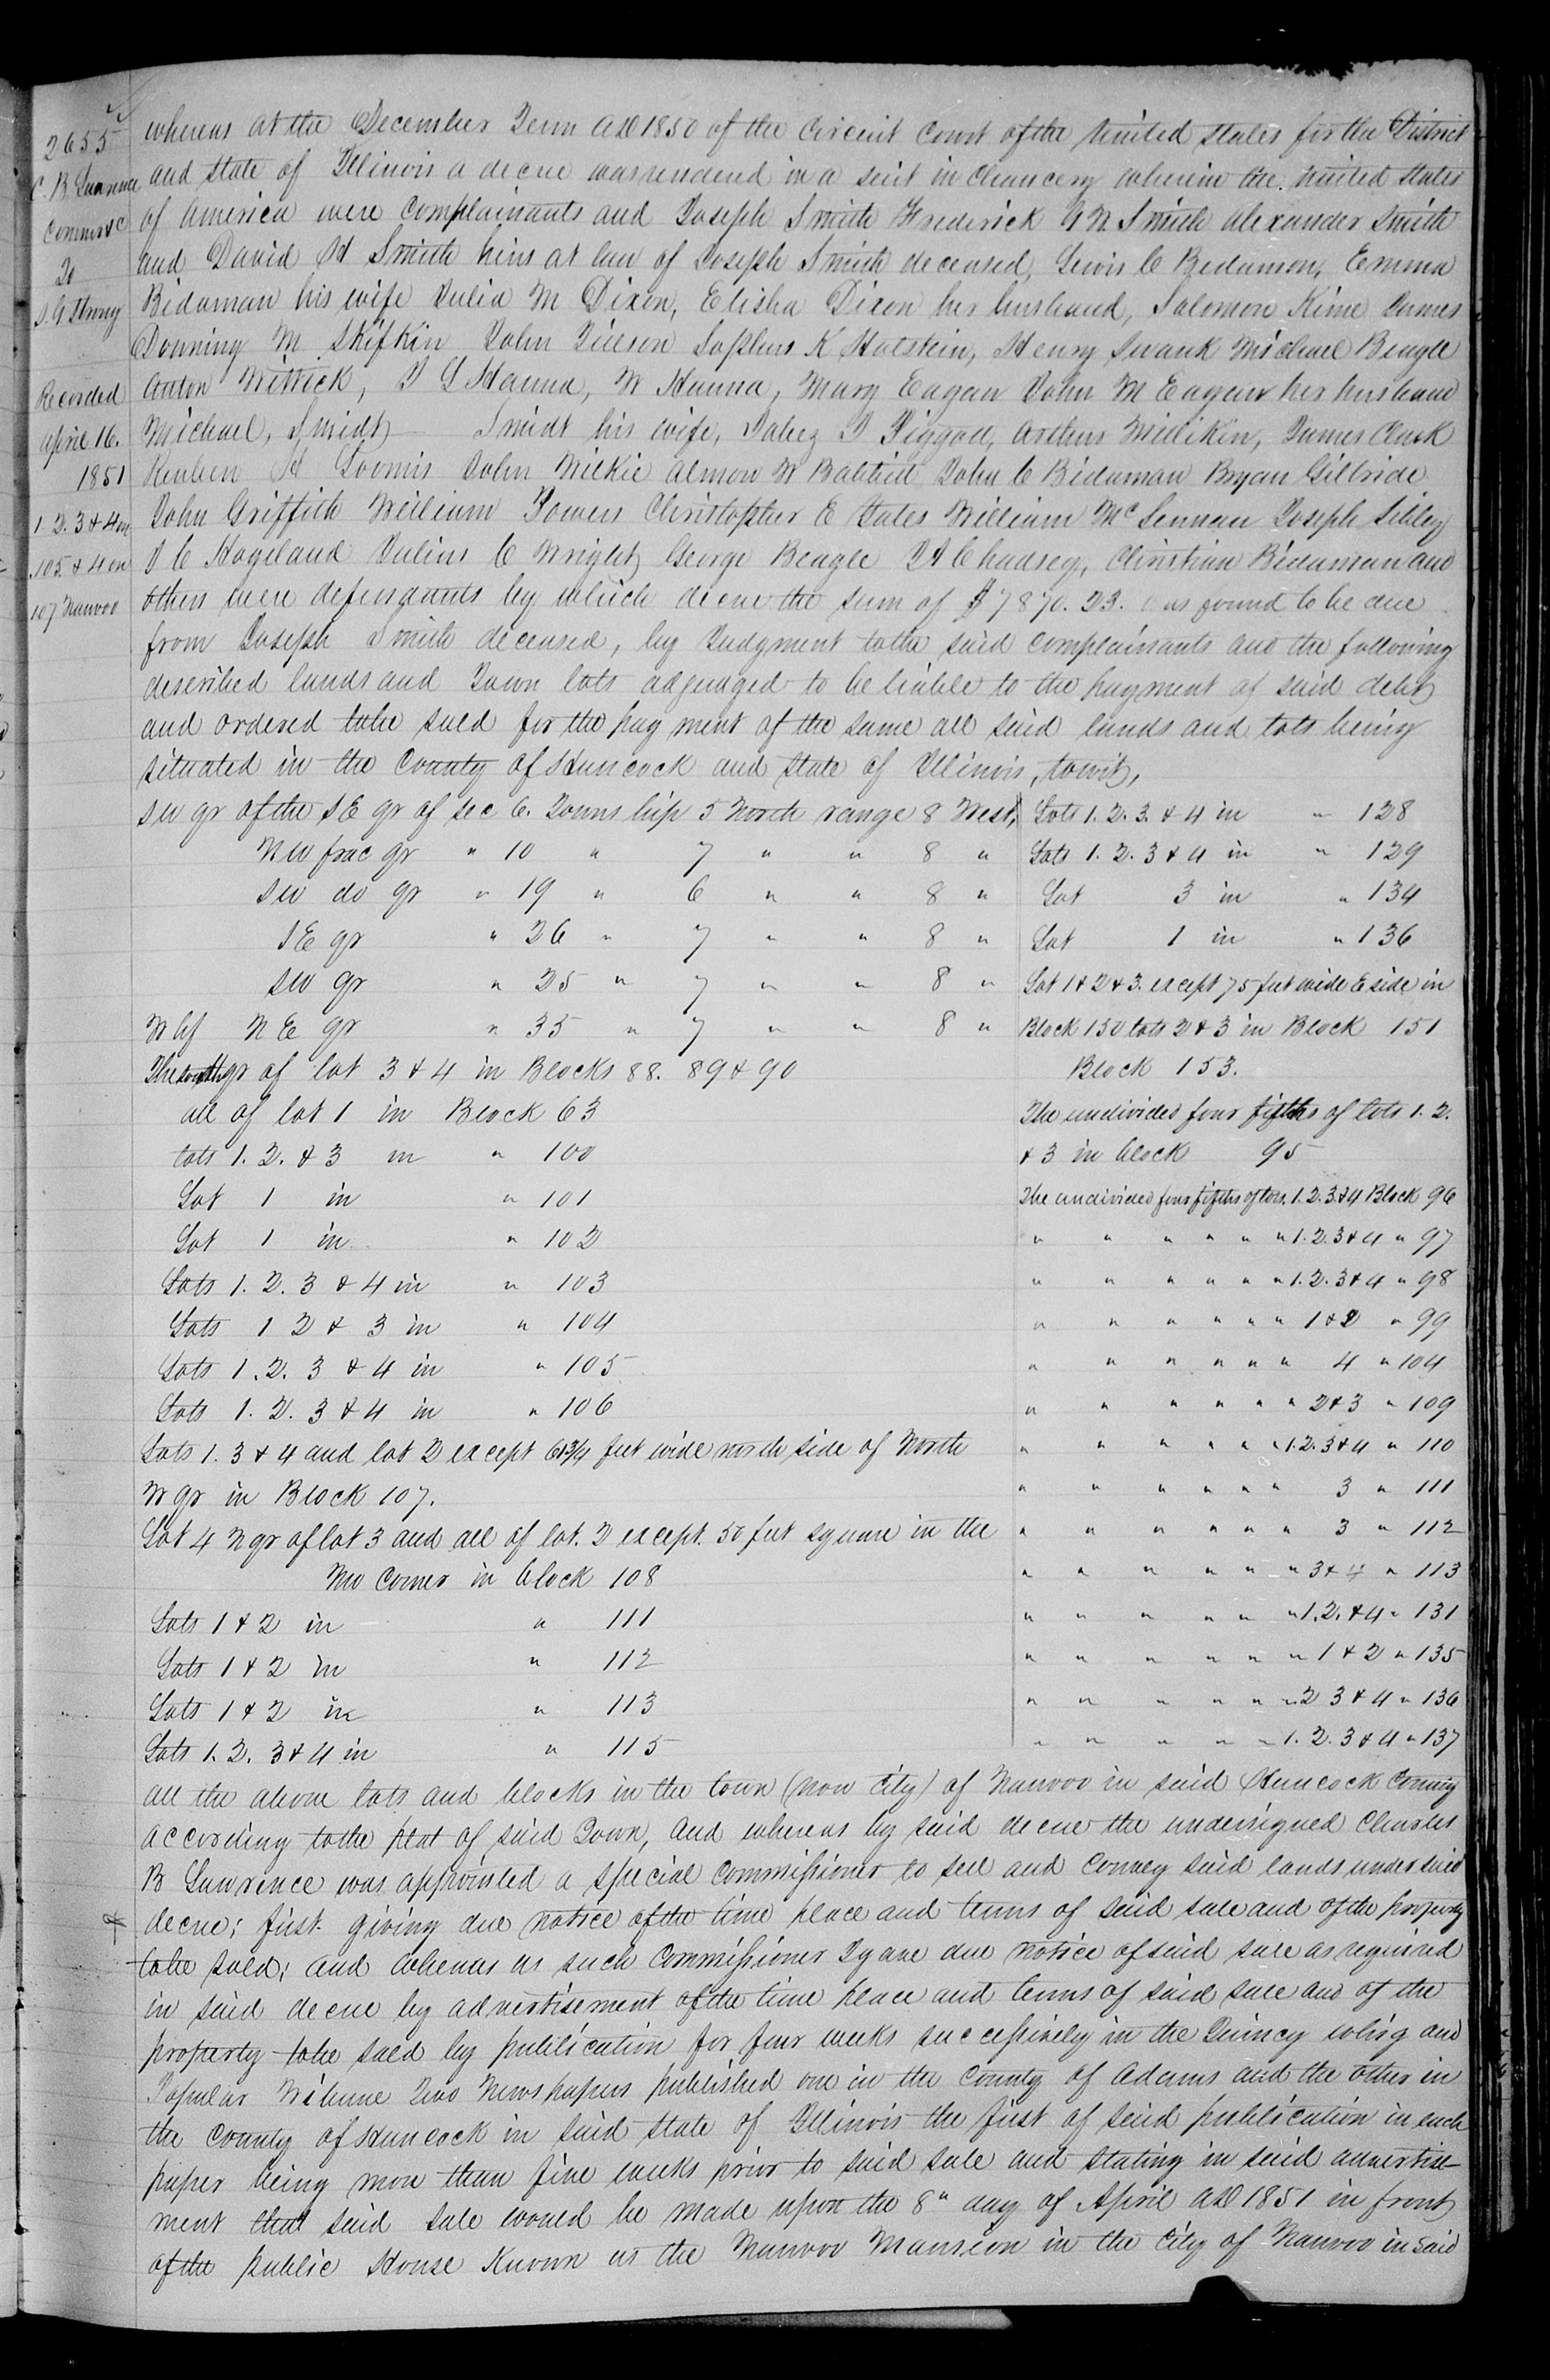 2655
C. B. Lawrence
Commr &c
To
J. A Strong
Recorded
April 16.
1851
1. 2. 3 & 4 in
105. & 4 in
107 Nauvoo
whereas at the December Term AD 1850 of the Circuit Court of the United States for the District
and State of Illinois a decree was rendered in a suit in Chancery wherein the United States
of America were Complainants and Joseph Smith Frederick G W Smith Alexander Smith
and David H Smith heirs at law of Joseph Smith deceased, Lewis C Bidamon, Emma
Bidaman his wife Julia M Dixon, Elisha Dixon her husband, Solomon Kime James
Downing M Skifkin John Tilson Sophus K Hotstein, Henry Swank Michael Beagle
Anton Wittick, J S Hanna, W Hanna, Mary Eagan John M Eagan her husband
Michael, Smidt Smidt his wife, Jabez J Piggott, Arthur Millikin, James Clark
Reuben H Loomis John Wilkie Almon W Babbitt John C Bidaman Bryan Gillride
John Griffith William Powers Christopher E Yates William McLennan Joseph Sibley
J C Hogeland Julius C Wright George Beagle Chadsey, Christian Bidaman and
others were defendants by which decree the sum of $7870. 23. was found to be due
from Joseph Smith deceased, by Judgment to the said complainants and the following
described lands and Town lots adjudged to be liable to the payment of said debt
and ordered to be sold for the pay ment of the same all said lands and lots being
situated in the County of Hancock and State of Illinois, towit,
SW qr of the SE qr of Sec 6. Township 5 North range 8 West,
NW frac qr " 10 " 7 " " 8 "
SW do qr " 19 " 6 " " 8 "
SE qr " 26 " 7 " " 8 "
SW qr " 25 " 7 " " 8 "
W hf NE qr " 35 " 7 " " 8 "
The south qr of lot 3 & 4 in Blocks 88. 89 & 90
all of lot 1 in Block 63
lots 1. 2. & 3 in " 100
Lot 1 in " 101
Lot 1 in " 102
Lots 1. 2. 3 & 4 in " 103
Lots 1 2 & 3 in " 104
Lots 1. 2. 3 & 4 in " 105
Lots 1. 2. 3 & 4 in " 106
Lots 1. 3 & 4 and lot 2 except 61 3/4 feet wide north side of North
W qr in Block 107.
Lot 4 N qr of lot 3 and all of lot. 2 except. 50 feet square in the
NW Corner in block 108
Lots 1 & 2 in " 111
Lots 1 & 2 in " 112
Lots 1 & 2 in " 113
Lots 1. 2. 3 & 4 in " 115
Lots 1. 2. 3. & 4 in " 128
Lots 1. 2. 3 & 4 in " 129
Lot 3 in " 134
Lot 1 in " 136
Lot 1 & 2 & 3. except 75 feet wide E side in
Block 150 lots 2 & 3 in Block 151
Block 153.
The undivided four fifths of lots 1. 2.
& 3 in block 95
The undivided four fifths of lots. 1. 2. 3 & 4 Block 96
" " " " " " 1. 2. 3 & 4 " 97
" " " " " " 1. 2. 3 & 4 " 98
" " " " " " 1 & 2 " 99
" " " " " " 4 " 104
" " " " " " 2 & 3 " 109
" " " " " " 1. 2. 3 & 4 " 110
" " " " " " 3 " 111
" " " " " " 3 " 112
" " " " " " 3 & 4 " 113
" " " " " " 1. 2. & 4 " 131
" " " " " " 1 & 2 " 135
" " " " " " 2 3 & 4 " 136
" " " " " 1. 2. 3 & 4 " 137
all the above lots and blocks in the town (now City) of Nauvoo in said Hancock County
according to the plat of said Town, and whereas by said decree the undersigned Charles
B Lawrence was appointed a special Commissioner to sell and convey said lands under said
decree; first. giving due notice of the time place and terms of said sale and of the property
to be sold; and whereas as such Commissioner I gave due notice of said sale as required
in said decree by advertisement of the time place and terms of said sale and of the
property to be sold by publication for four weeks successively in the Quincy whig and
Popular Tribune Two Newspapers published one in the County of Adams and the other in
the County of Hancock in said State of Illinois the first of said publication in each
paper being more than five weeks prior to said sale and stating in said advertise-
ment that said sale would be made upon the 8" day of April AD 1851 in front
of the public House Known as the Nauvoo Mansion in the City of Nauvoo in said